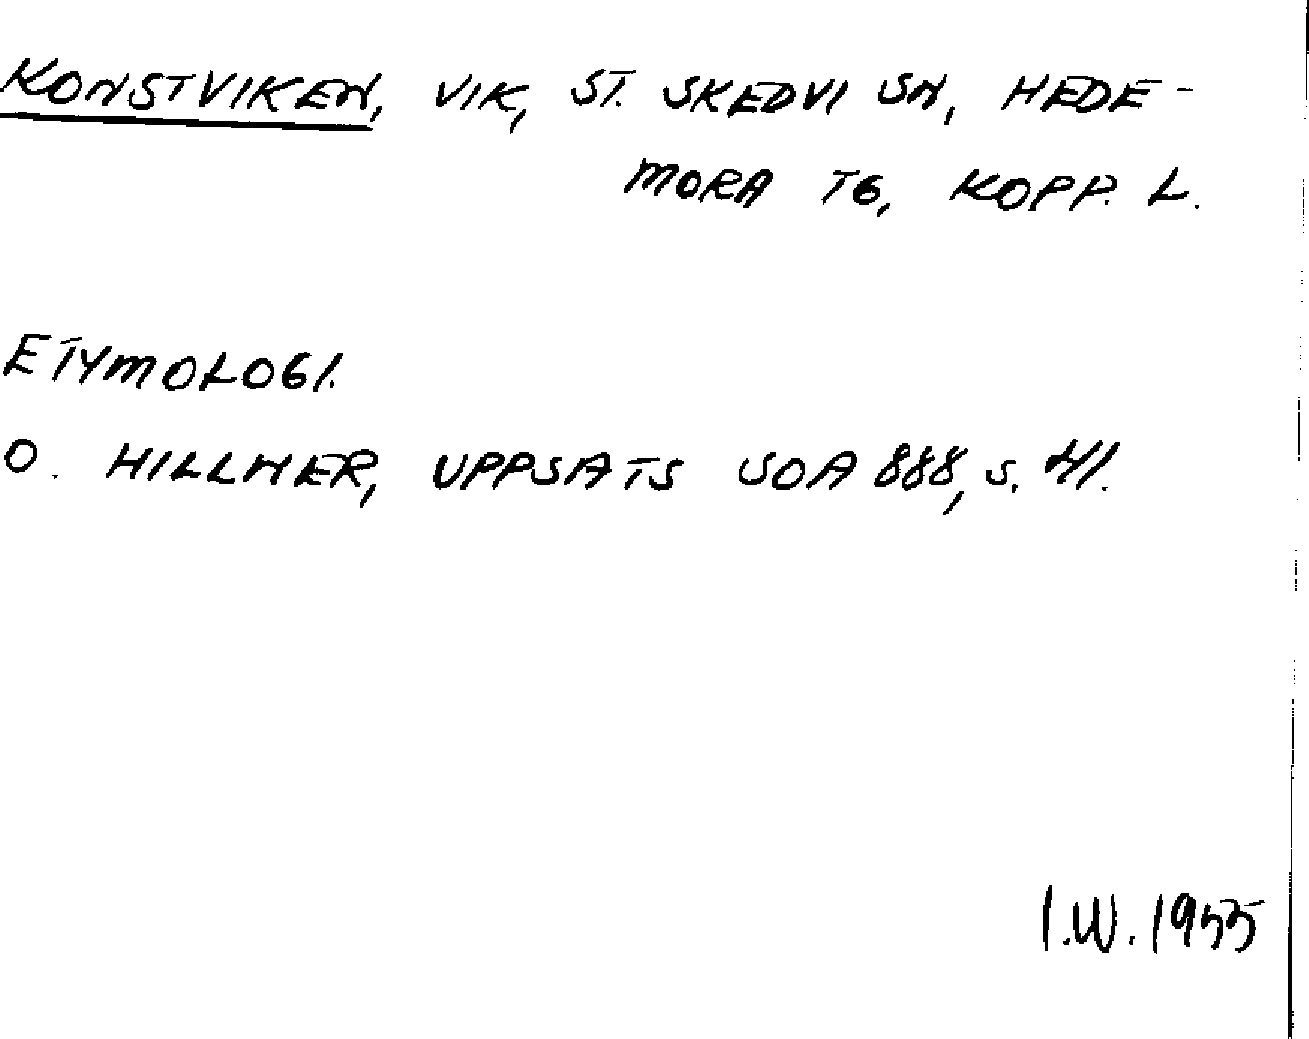 KONSTVIKEN, VIK, ST. SKEDVI SN, HEDE-
MORA TG, KOPP. L.
ETYMOLOGI.
O. HILLNER, UPPSATS SOA 888, S. 41.
I.W. 1955